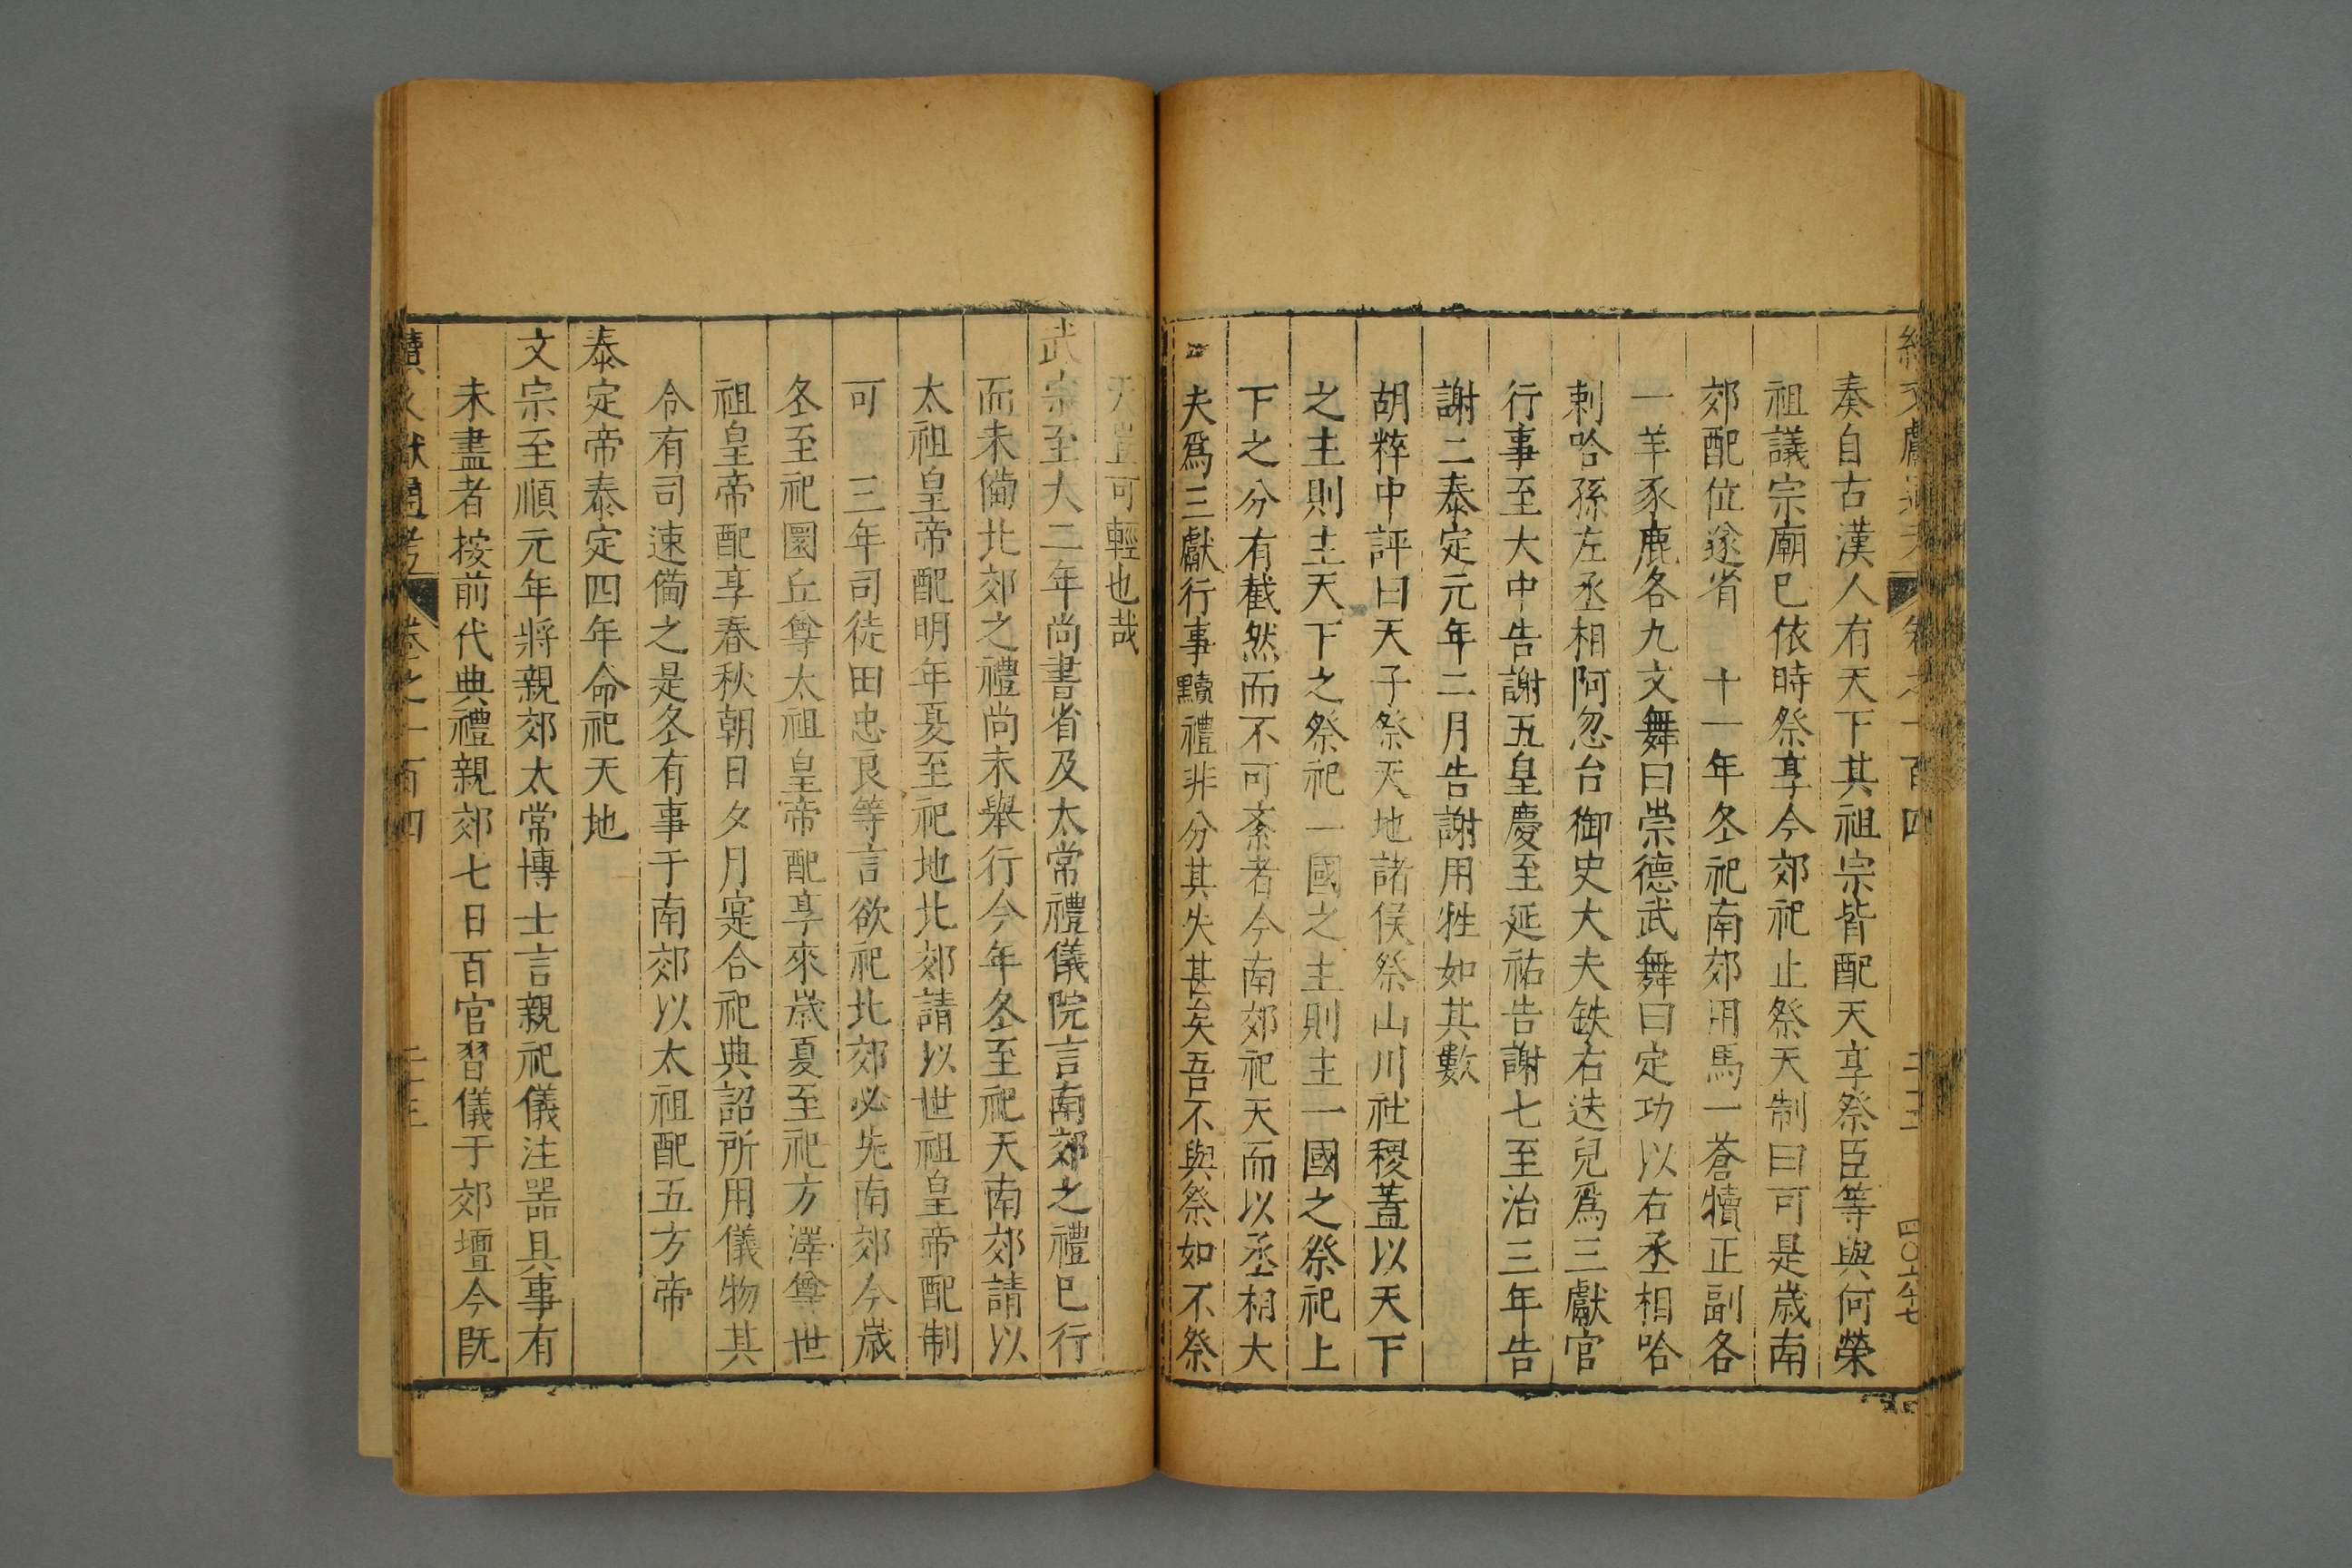 續文獻通考 卷之一百四 二十三 四〇六七
奏自古漢人有天下其祖宗皆配天享祭臣等與何榮
祖議宗廟巳依時祭享今郊祀止祭天制曰可是歲南
郊配位遂省 十一年冬祀南郊用馬一蒼犢正副各
一羊豕鹿各九文舞曰崇德武舞曰定功以右丞相哈
剌哈孫左丞相阿忽台御史大夫鉄右迭兒爲三獻官
行事至大中告謝五皇慶至延祐告謝七至治三年告
謝二泰定元年二月告謝用牲如其數
胡粹中評曰天子祭天地諸侯祭山川社稷蓋以天下
之主則主天下之祭祀一國之主則主一國之祭祀上
下之分有截然而不可紊者今南郊祀天而以丞相大
夫爲三獻行事黷禮非分其失甚矣吾不與祭如不祭
天豈可輕也哉
武宗至大二年尚書省及太常禮儀院言南郊之禮巳行
而未備北郊之禮尚未舉行今年冬至祀天南郊請以
太祖皇帝配明年夏至祀地北郊請以世祖皇帝配制
可 三年司徒田忠良等言欲祀北郊必先南郊今歲
冬至祀圜丘尊太祖皇帝配享來歲夏至祀方澤尊世
祖皇帝配享春秋朝日夕月寔合祀典詔所用儀物其
令有司速備之是冬有事于南郊以太祖配五方帝
泰定帝泰定四年命祀天地
文宗至順元年將親郊太常博士言親祀儀注器具事有
未盡者按前代典禮親郊七日百官習儀于郊壇今既
續文獻通考 卷之一百四 二十三